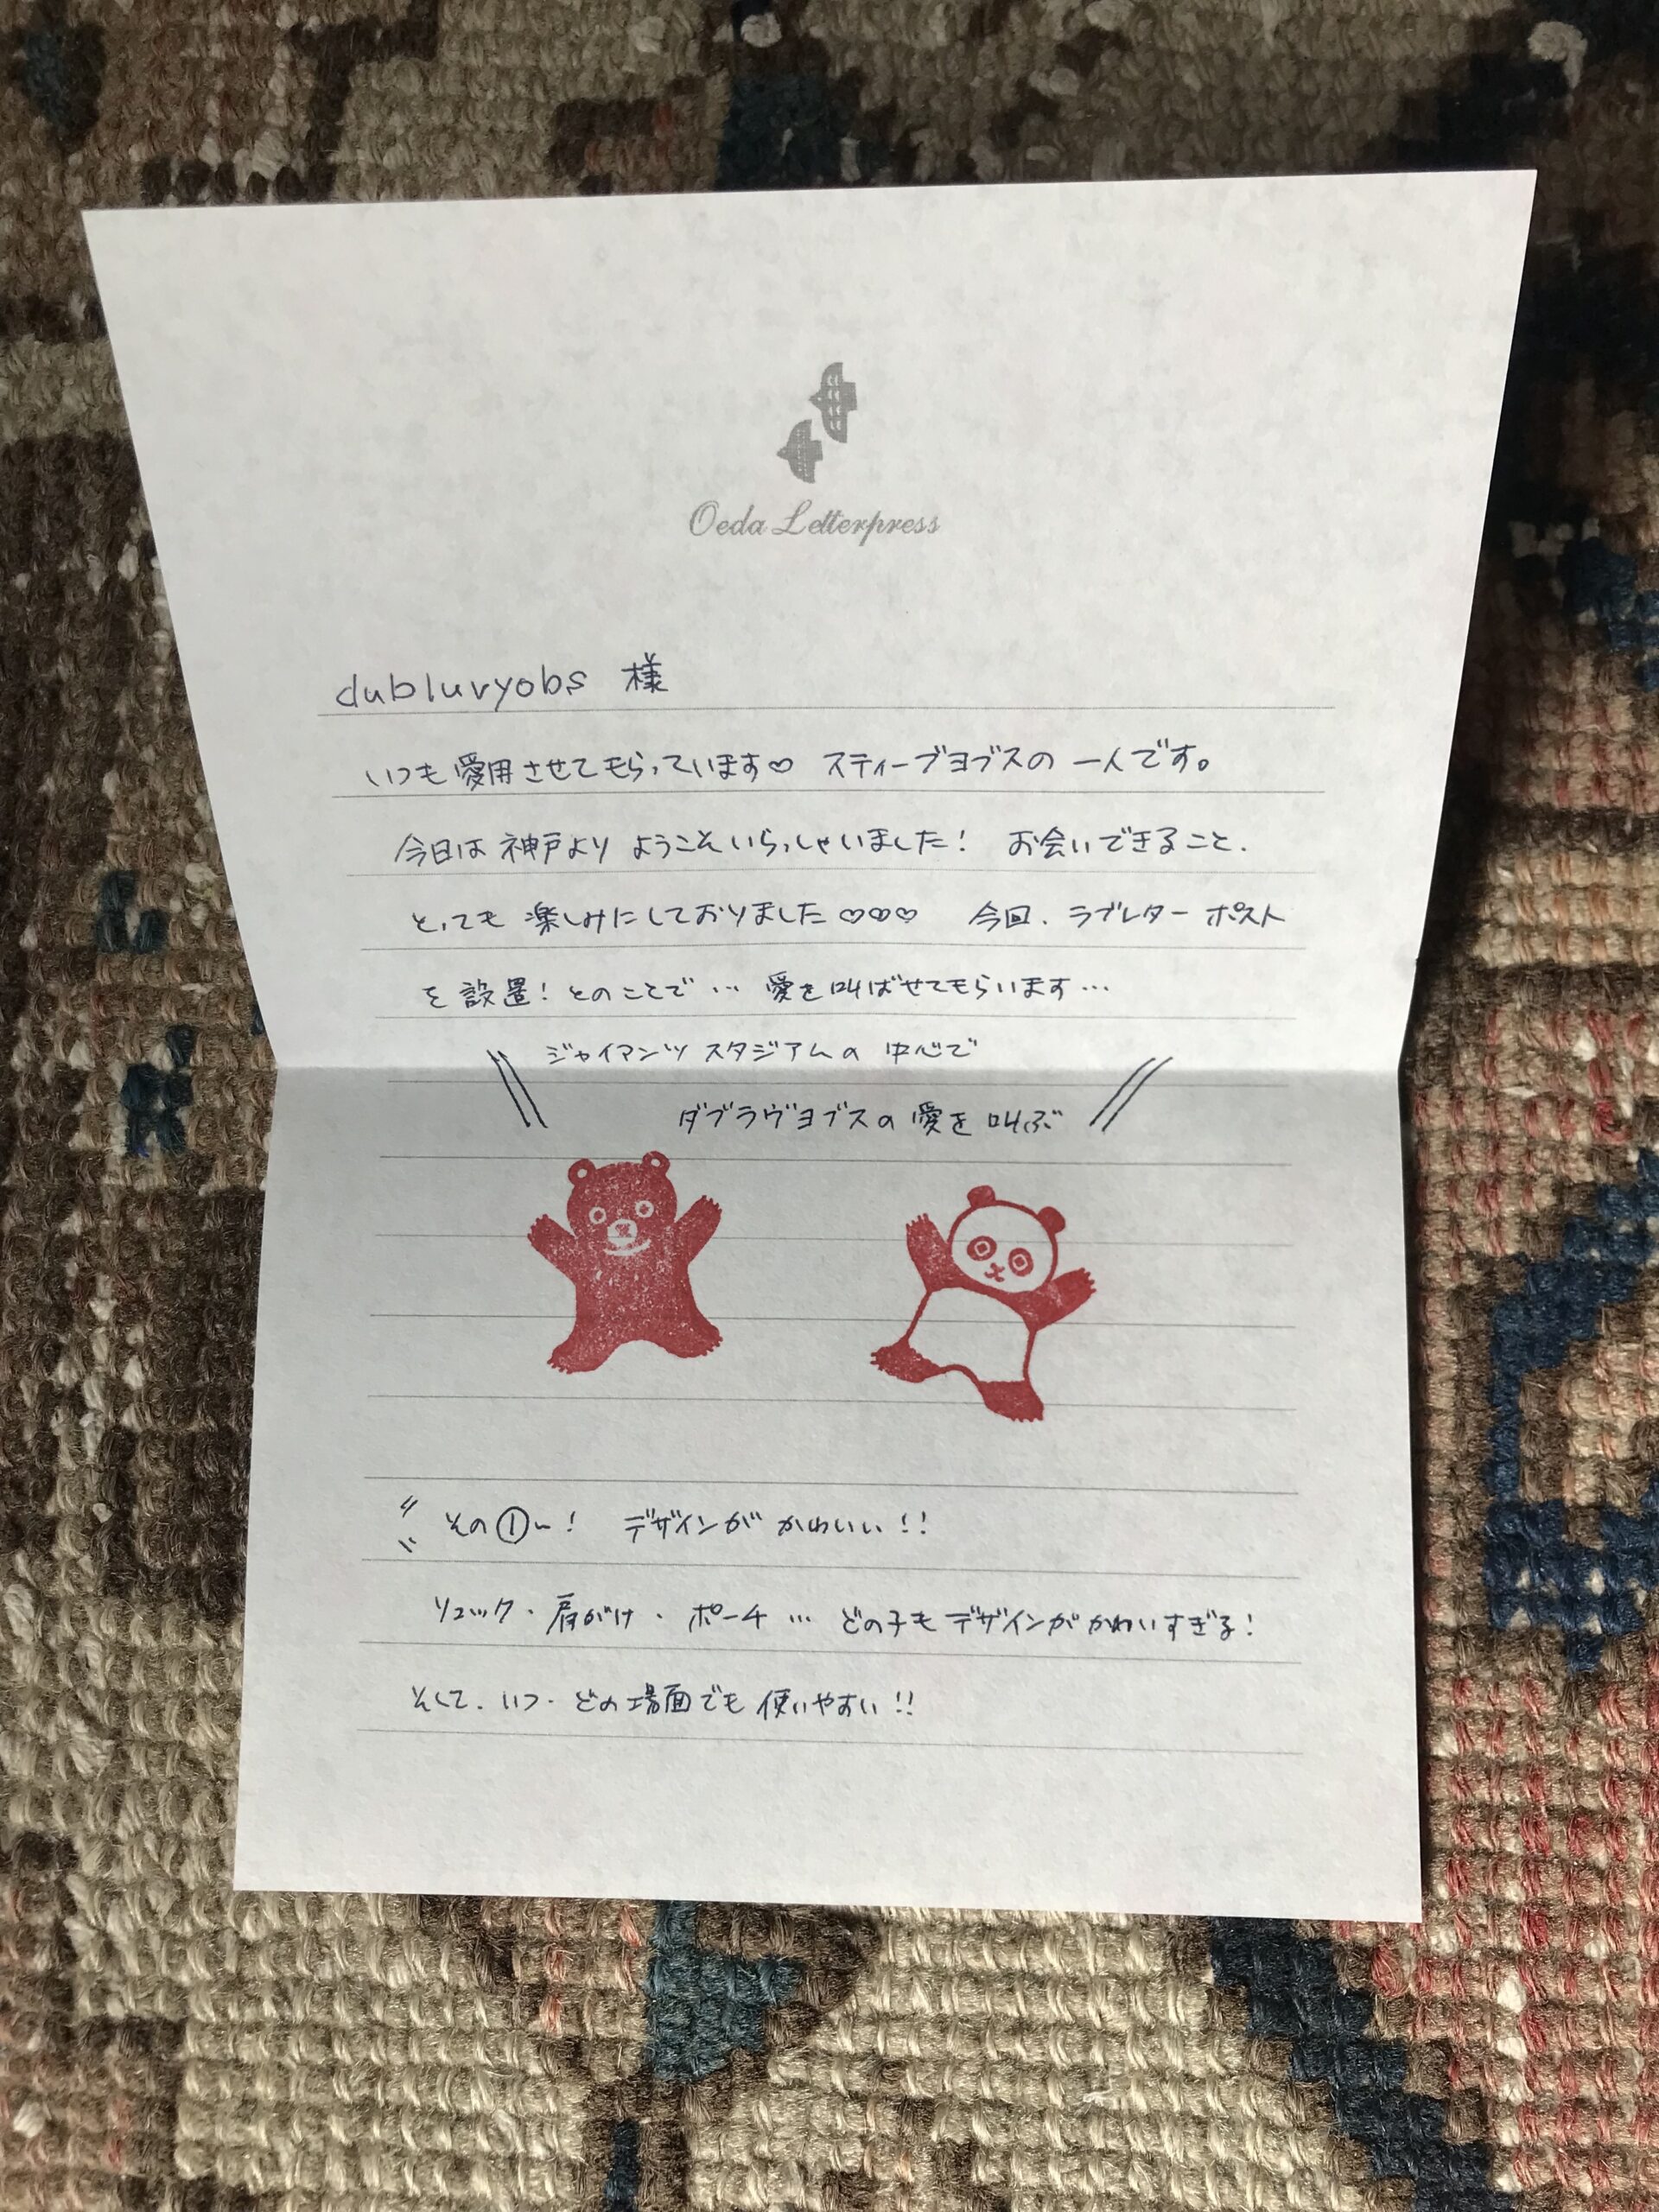 Oeda Letterpress
dubluvyobs 様
いつも愛用させてもらっています♡ スティーブヨブスの一人です。
今日は神戸より ようこそいらっしゃいました！ お会いできること、
とっても楽しみにしておりました♡♡♡ 今回、ラブレターポスト
を設置！とのことで… 愛を叫ばせてもらいます…
\\ ジャイアンツスタジアムの中心で
ダブラヴヨブスの愛を叫ぶ //
その①〜！ デザインがかわいい！！
リュック・肩がけ・ポーチ… どの子もデザインがかわいすぎる！
そして、いつ・どの場面でも使いやすい！！